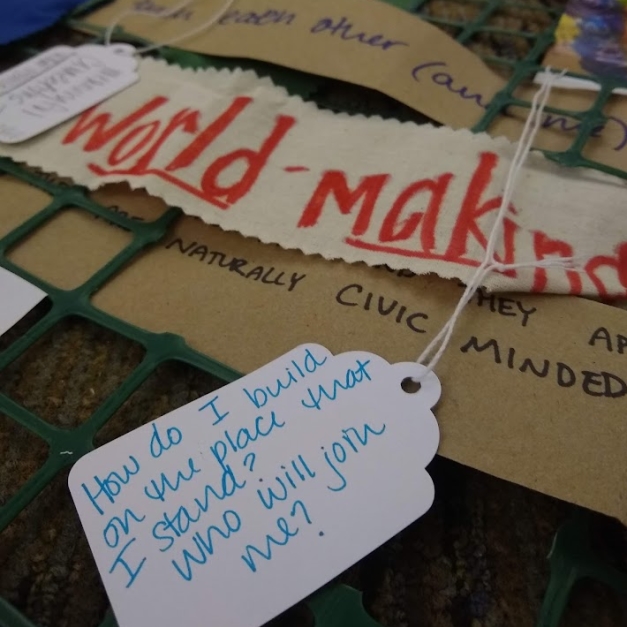 each other (and me)
world-making
NATURALLY
CIVIC
THEY
MINDED
How do I build
on the place that
I stand?
who will join
me?